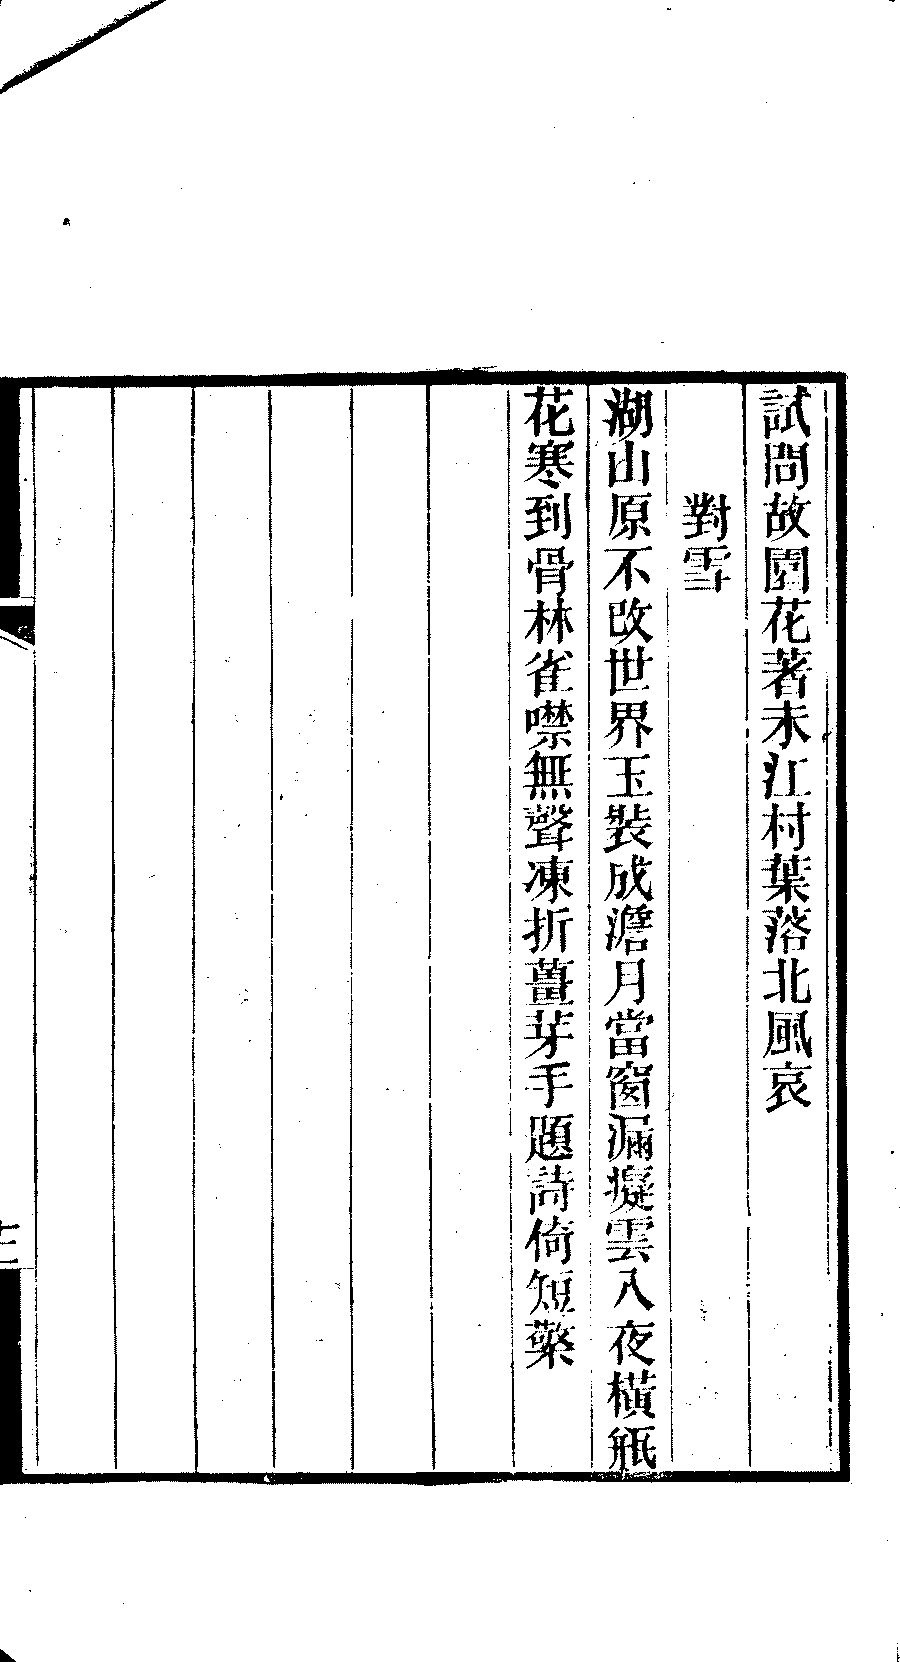 試問故園花著未江村葉落北風哀
對雪
湖山原不改世界玉裝成澹月當窗漏癡雲入夜橫瓶
花寒到骨林雀噤無聲凍折薑芽手題詩倚短檠